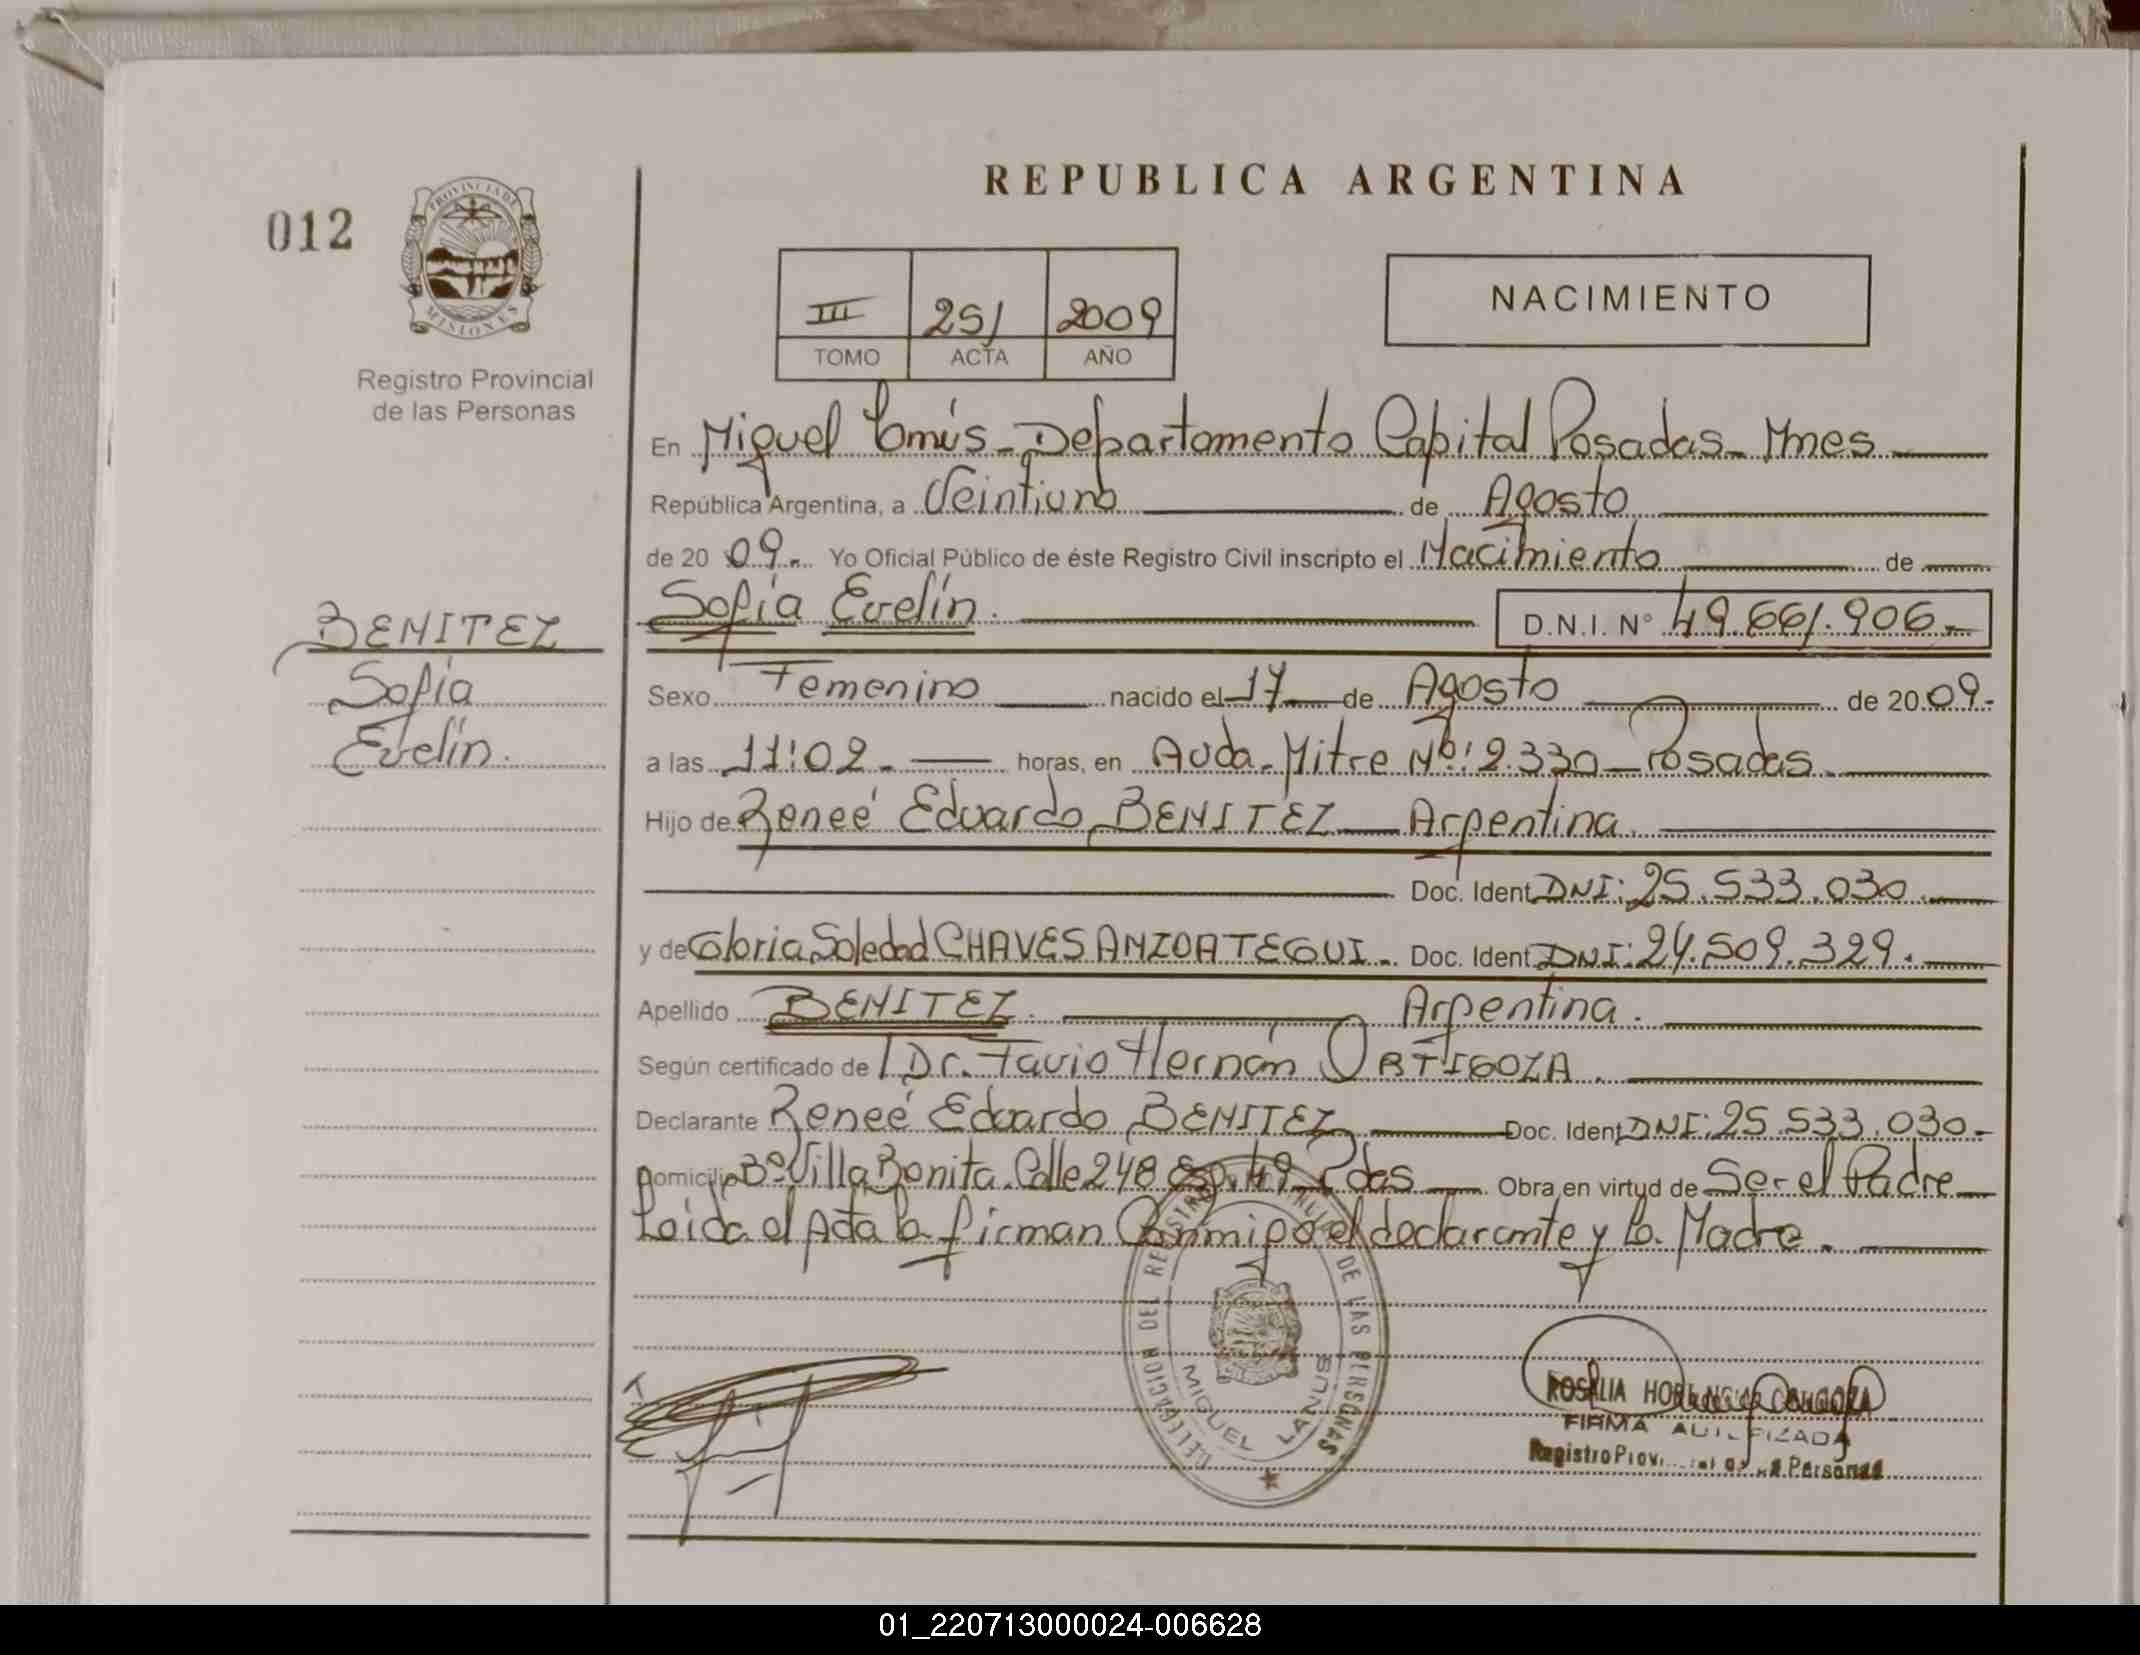 REPUBLICA ARGENTINA
012
PROVINCIA DE
MISIONES
Registro Provincial
de las Personas
III 251 2009
TOMO ACTA AÑO
NACIMIENTO
En Miguel Lanús - Departamento Capital Posadas - Mnes
República Argentina, a Veintiuno de Agosto
de 20 09.- Yo Oficial Público de éste Registro Civil inscripto el Nacimiento de
Sofía Evelín. D.N.I. N° 49.661.906.-
BENITEZ
Sofía
Evelín.
Sexo Femenino nacido el 17 de Agosto de 20 09.-
a las 11:02.- horas, en Avda. Mitre Nº: 2.330 - Posadas.
Hijo de Reneé Eduardo BENITEZ Argentina.
Doc. Ident. DNI: 25.533.030.
y de Gloria Soledad CHAVES ANZOATEGUI. Doc. Ident. DNI: 24.509.329.
Apellido BENITEZ. Argentina.
Según certificado de Dr. Favio Hernán ORTIGOZA.
Declarante Reneé Eduardo BENITEZ Doc. Ident. DNI: 25.533.030.-
Domicilio Bº Villa Bonita. Calle 248 Esp. 49 - Pdas Obra en virtud de Ser el Padre
Leida el Acta la firman Conmigo el declarante y la Madre.
DELEGACION DEL REGISTRO DE LAS PERSONAS
MIGUEL LANUS
ROSALIA
FIRMA AUTORIZADA
Registro Prov. Personas
01_220713000024-006628